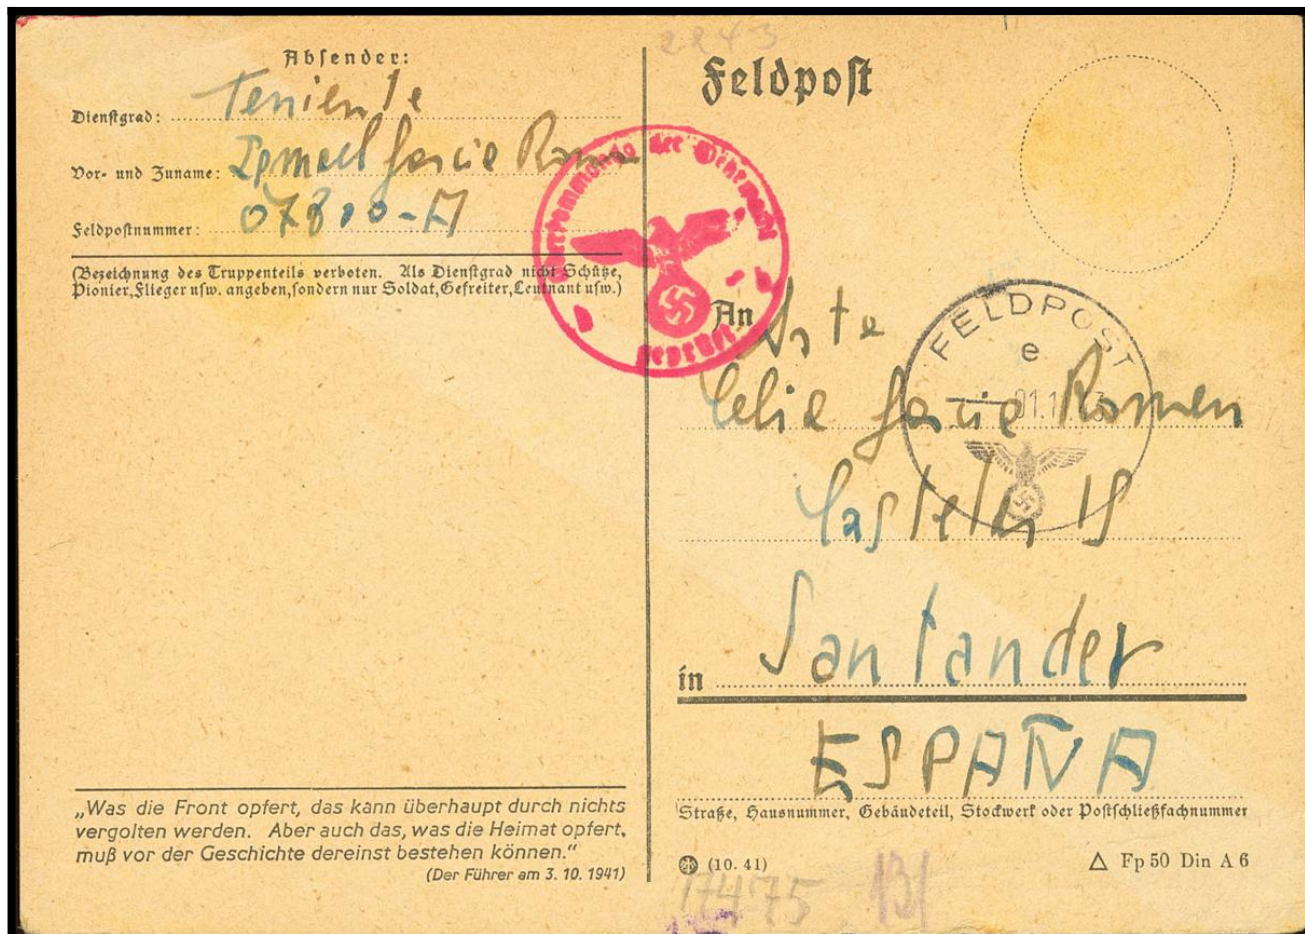 2243
Absender:
Dienstgrad: Teniente
Vor- und Zuname: Ismael Garcie Roma
Feldpostnummer: 07800-A
(Bezeichnung des Truppenteils verboten. Als Dienstgrad nicht Schütze,
Pionier, Flieger usw. angeben, sondern nur Soldat, Gefreiter, Leutnant usw.)
„Was die Front opfert, das kann überhaupt durch nichts
vergolten werden. Aber auch das, was die Heimat opfert,
muß vor der Geschichte dereinst bestehen können.“
(Der Führer am 3. 10. 1941)
Oberkommando der Wehrmacht
geprüft
Feldpost
FELDPOST
e
An Srta
Celie Garcie Romen
Castelar 15
in Santander
ESPAÑA
Straße, Hausnummer, Gebäudeteil, Stockwerk oder Postschließfachnummer
(10. 41)
△ Fp 50 Din A 6
17475 131